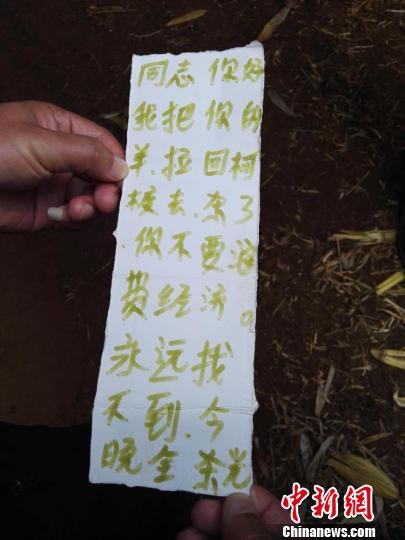 同志你好
我把你的
羊.拉回柯
梭去.杀了
.你不要浪
费经济。
永远找
不到.今
晚全杀光
中新网
Chinanews.com